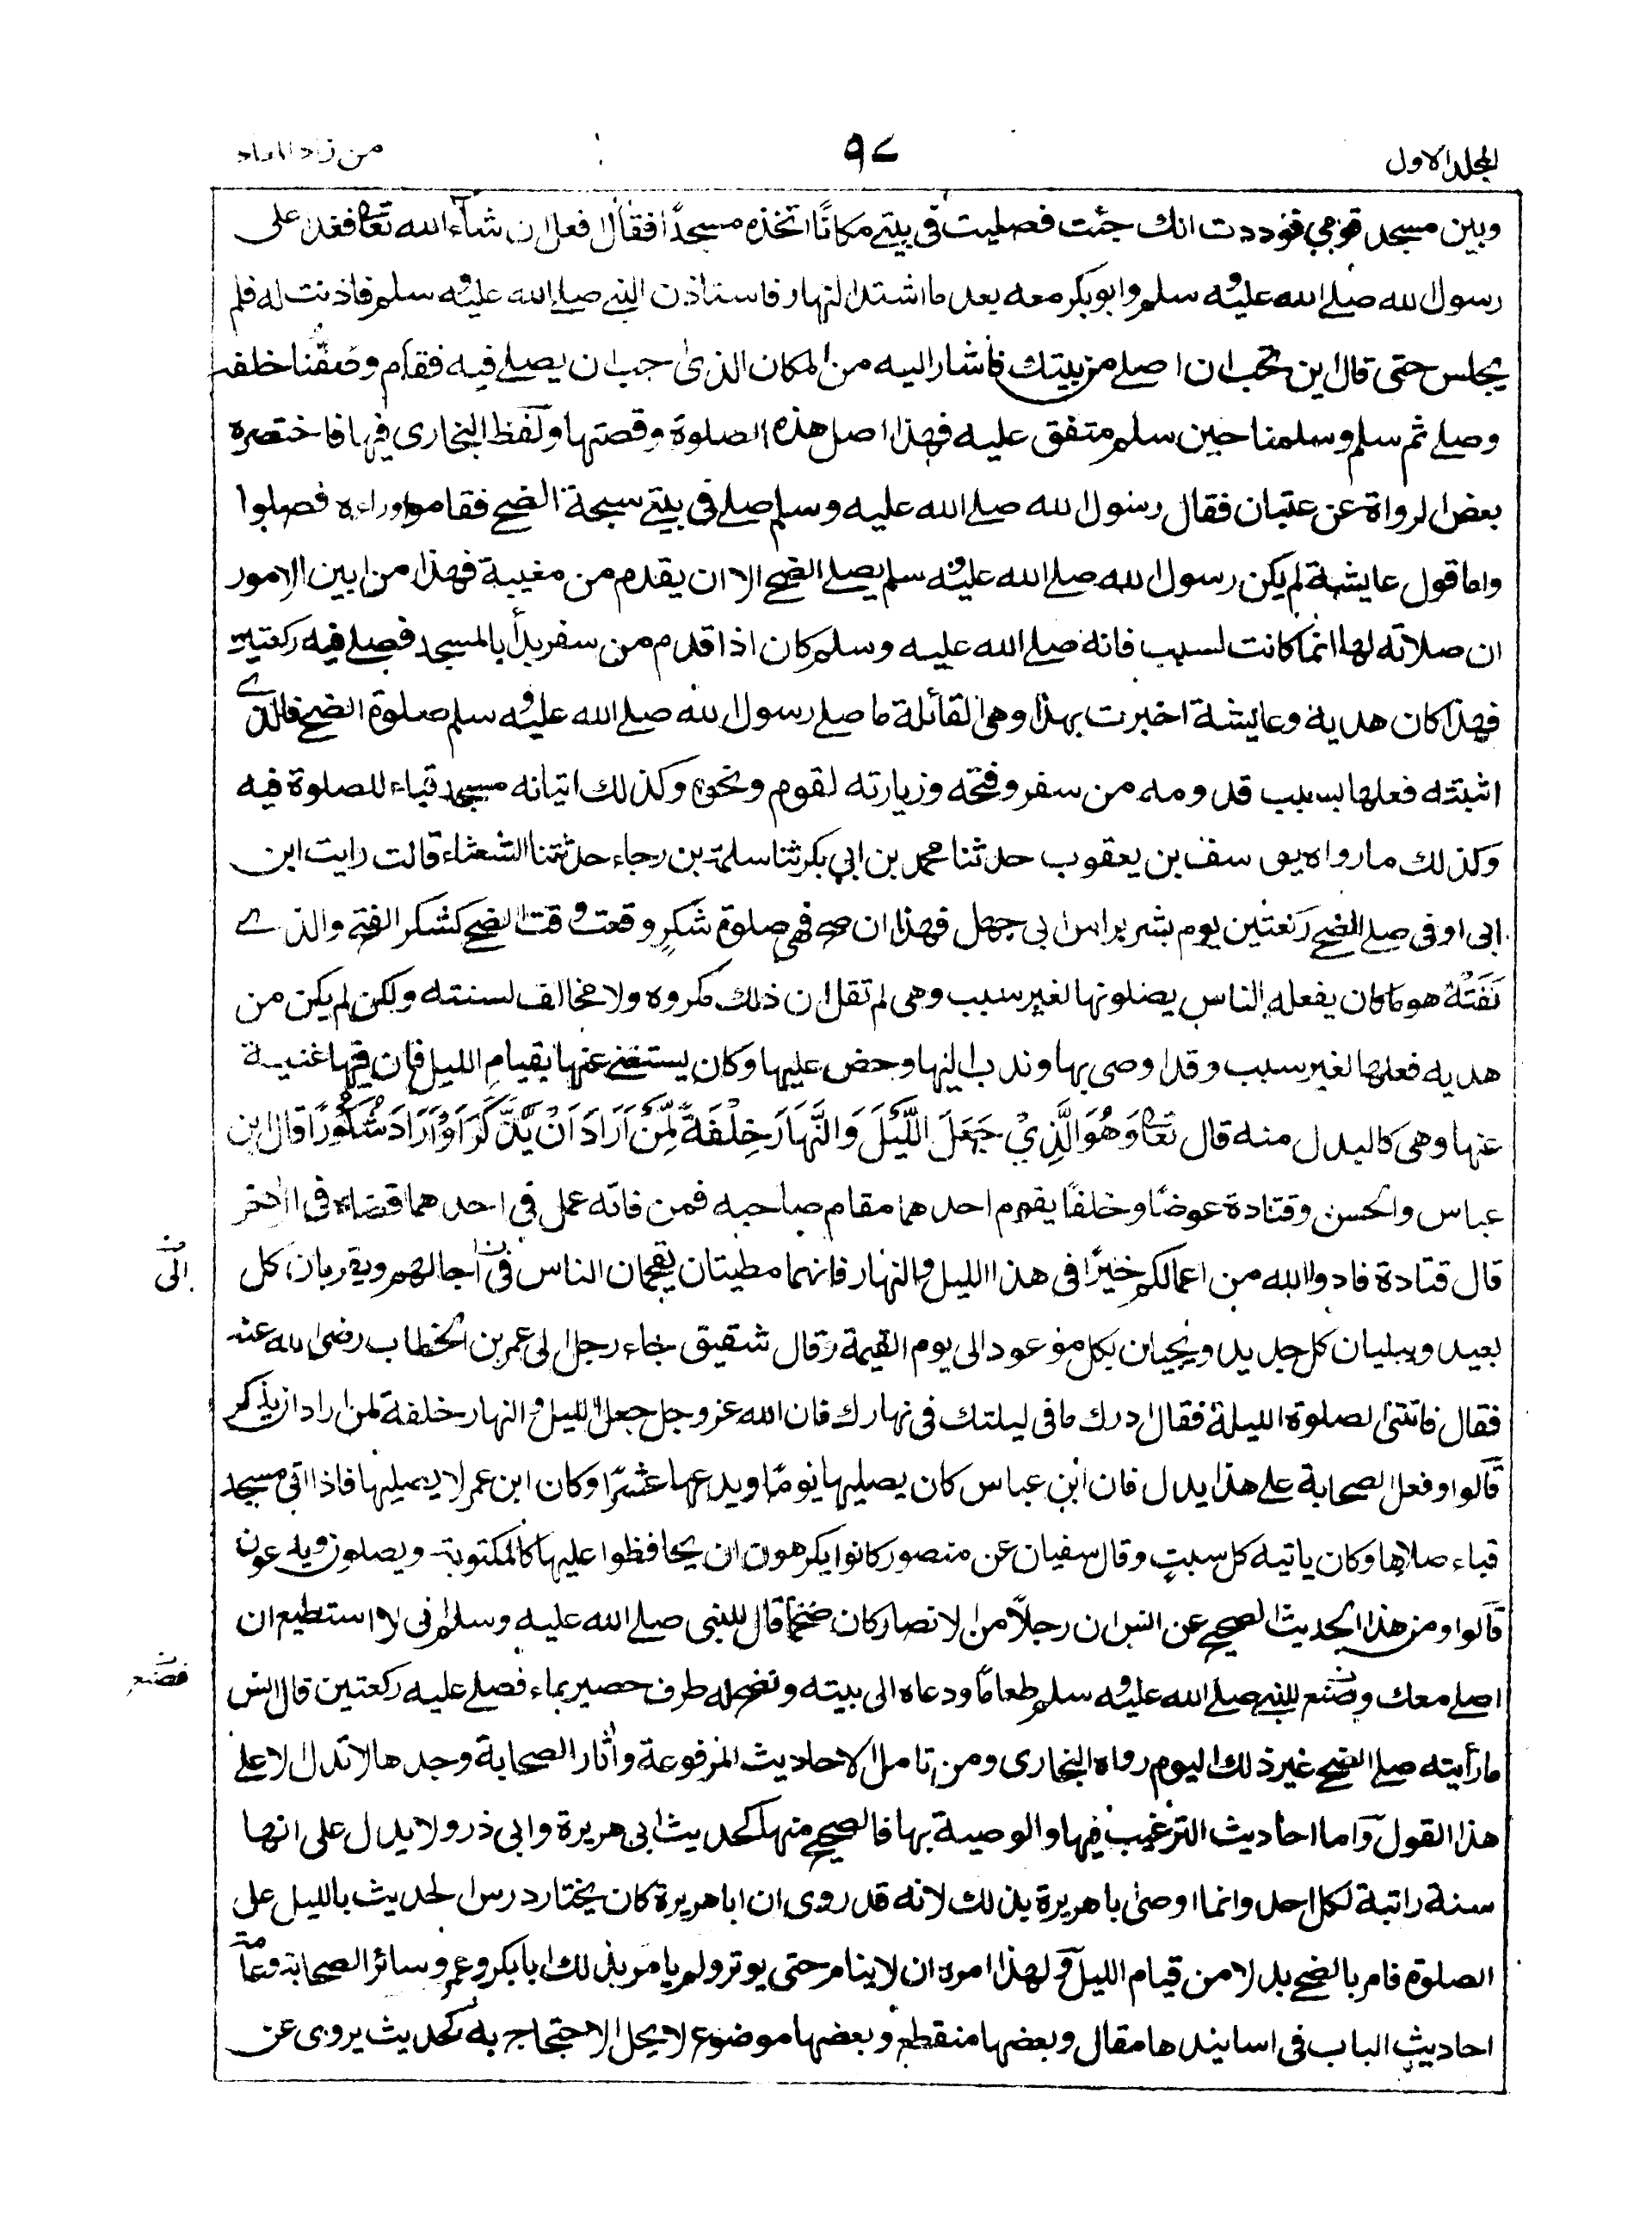 المجلد الاول
٩٧
من زاد المعاد
وبين مسجد قومي فوددت انك جئت فصليت فى بيتے مكانًا اتخذه مسجدًا فقال افعل ان شآء الله تعا فغدا على
رسول الله صلے الله عليه وسلم وابو بكر معه بعد ما اشتد النهار فاستاذن النبے صلے الله عليه وسلم فاذنت له فلم
يجلس حتى قال اين تحب ان اصلے من بيتك فاشار اليه من المكان الذى احب ان يصلے فيه فقام وصففنا خلفه
وصلے ثم سلم وسلمنا حين سلم متفق عليه فهذا اصل هذه الصلوة وقصتها ولفظ البخارى فيها فاختصره
بعض الرواة عن عتبان فقال رسول الله صلے الله عليه وسلم صلے فى بيتے سبحة الضحے فقاموا وراءه فصلوا
واما قول عايشة لم يكن رسول الله صلے الله عليه وسلم يصلے الضحے الا ان يقدم من مغيبة فهذا من ابين الامور
ان صلاته لها انما كانت لسبب فانه صلے الله عليه وسلم كان اذا قدم من سفر بدأ بالمسجد فصلے فيه ركعتين
فهذا كان هديه وعايشة اخبرت بهذا وهى القائلة ما صلے رسول الله صلے الله عليه وسلم صلوة الضحے فالذے
اثبتته فعلها بسبب قدومه من سفر وفتحه وزيارته لقوم ونحوه وكذلك اتيانه مسجد قباء للصلوة فيه
وكذلك ما رواه يوسف بن يعقوب حدثنا محمد بن ابي بكر ثنا سلمة بن رجاء حدثتنا الشعثاء قالت رايت ابن
ابى اوفى صلے الضحے ركعتين يوم بشر براس ابى جهل فهذا ان صح فهى صلوة شكر وقعت وقت الضحے كشكر الفتح والذے
نَفَتْهُ هو ما كان يفعله الناس يصلونها لغير سبب وهى لم تقل ان ذلك مكروه ولا مخالف لسنته ولكن لم يكن من
هديه فعلها لغير سبب وقد اوصى بها وندب اليها وحض عليها وكان يستغنے عنها بقيام الليل فان فيها غنية
عنها وهى كالبدل منه قال تعا وَهُوَ الَّذِيْ جَعَلَ اللَّيْلَ وَالنَّهَارَ خِلْفَةً لِّمَنْ اَرَادَ اَنْ يَّذَّكَّرَ اَوْ اَرَادَ شُكُوْرًا قال ابن
عباس والحسن وقتادة عوضًا وخلفًا يقوم احدهما مقام صاحبه فمن فاته عمل فى احدهما قضاه فى الاخر
قال قتادة فادوا لله من اعمالكم خيرًا فى هذا الليل والنهار فانهما مطيتان يقحمان الناس فى اجالهم ويقربان كل
الى
بعيد ويبليان كل جديد ويجيان بكل موعود الى يوم القيمة وقال شقيق جاء رجل الى عمر بن الخطاب رضى الله عنه
فقال فاتتنى الصلوة الليلة فقال ادرك ما فى ليلتك فى نهارك فان الله عز وجل جعل الليل والنهار خلفة لمن اراد ان يذكر
قالوا وفعل الصحابة على هذا يدل فان ابن عباس كان يصليها يومًا ويدعها عشرًا وكان ابن عمر لا يصليها فاذا اتى مسجد
قباء صلاها وكان ياتيه كل سبت وقال سفيان عن منصور كانوا يكرهون ان يحافظوا عليها كالمكتوبة ويصلون ويدعون
قالوا ومن هذا الحديث الصحيح عن انس ان رجلًا من الانصار كان ضخمًا قال للنبى صلے الله عليه وسلم انى لا استطيع ان
اصلے معك وصنع للنبے صلے الله عليه وسلم طعامًا ودعاه الى بيته ونضح له طرف حصير بماء فصلے عليه ركعتين قال انس
فصنع
ما رأيته صلے الضحے غير ذلك اليوم رواه البخارى ومن تامل الاحاديث المرفوعة واثار الصحابة وجدها لا تدل الا على
هذا القول واما احاديث الترغيب فيها والوصية بها فالصحيح منها كحديث ابى هريرة وابى ذر ولا يدل على انها
سنة راتبة لكل احد وانما اوصى ابا هريرة بذلك لانه قد روى ان ابا هريرة كان يختار درس الحديث بالليل على
الصلوة فامر بالضحے بدلا من قيام الليل ولهذا امره ان لا ينام حتى يوتر ولم يامر بذلك ابا بكر وعمر وسائر الصحابة وعامة
احاديث الباب فى اسانيدها مقال وبعضها منقطع وبعضها موضوع لا يحل الاحتجاج به كحديث يروى عن